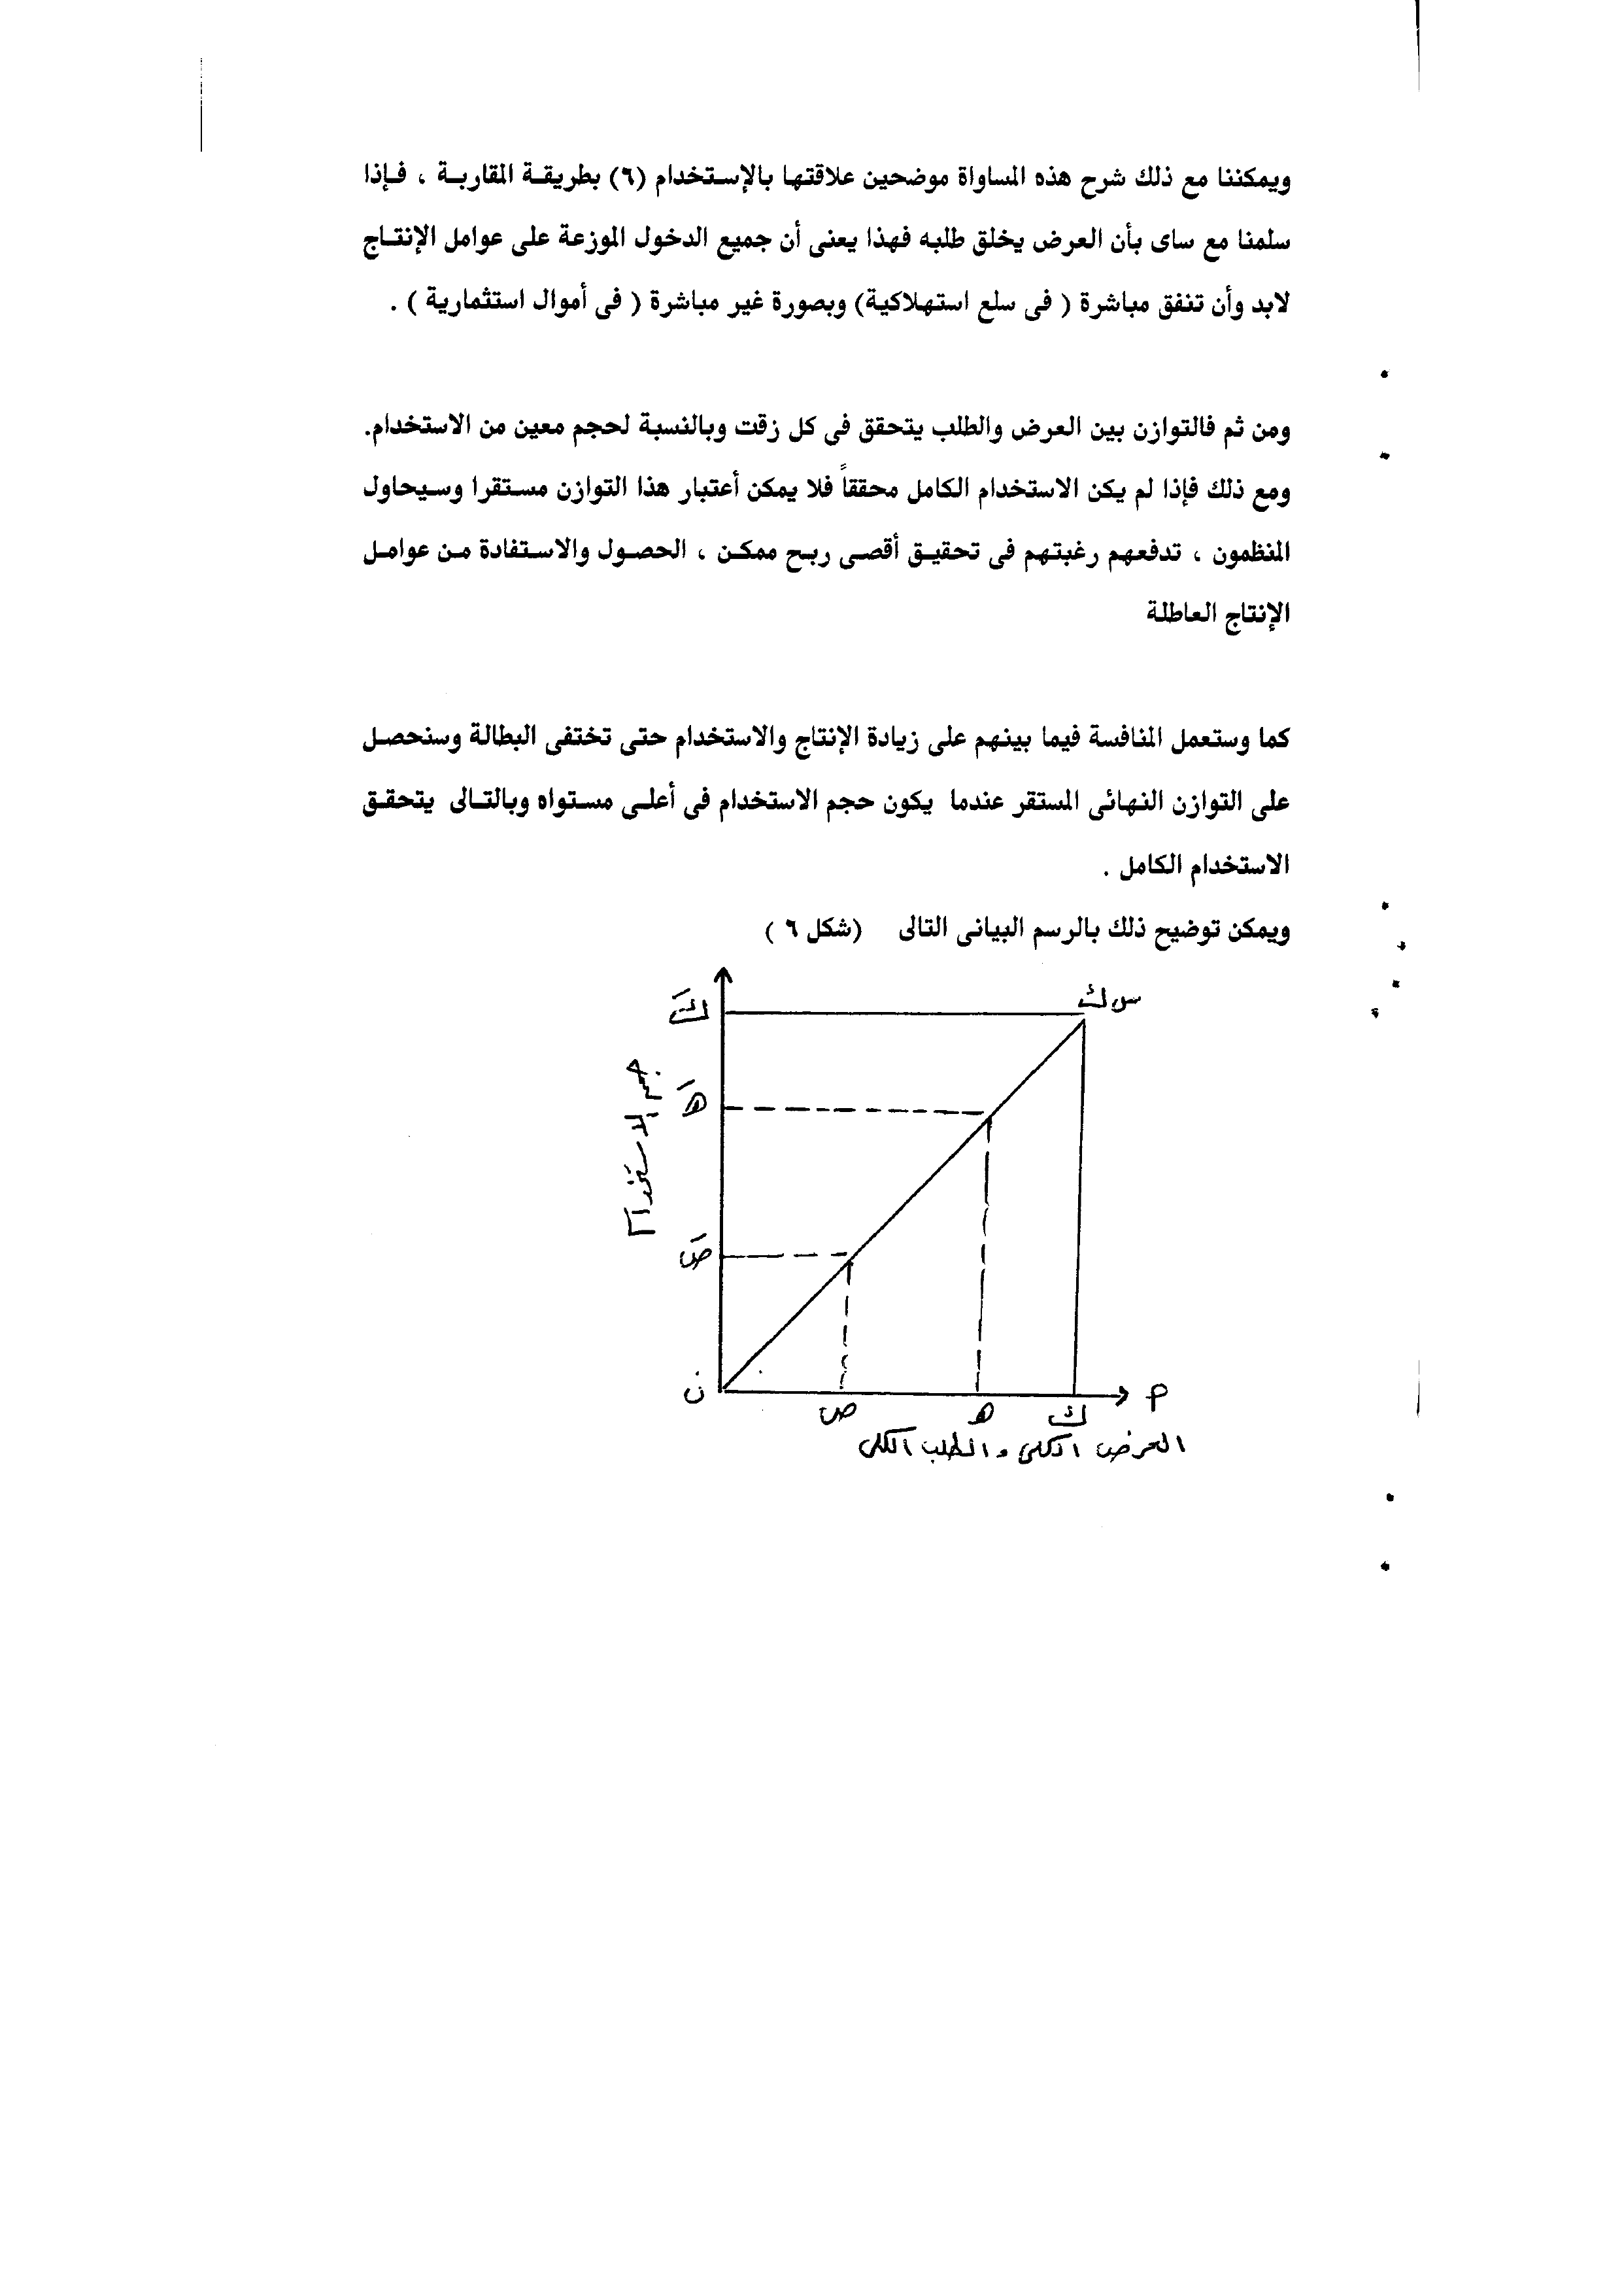 ويمكننا مع ذلك شرح هذه المساواة موضحين علاقتها بالإستخدام (٦) بطريقة المقاربة ، فإذا
سلمنا مع ساى بأن العرض يخلق طلبه فهذا يعنى أن جميع الدخول الموزعة على عوامل الإنتاج
لابد وأن تنفق مباشرة ( فى سلع استهلاكية) وبصورة غير مباشرة ( فى أموال استثمارية ) .
ومن ثم فالتوازن بين العرض والطلب يتحقق فى كل زقت وبالنسبة لحجم معين من الاستخدام.
ومع ذلك فإذا لم يكن الاستخدام الكامل محققاً فلا يمكن أعتبار هذا التوازن مستقرا وسيحاول
المنظمون ، تدفعهم رغبتهم فى تحقيق أقصى ربح ممكن ، الحصول والاستفادة من عوامل
الإنتاج العاطلة
كما وستعمل المنافسة فيما بينهم على زيادة الإنتاج والاستخدام حتى تختفى البطالة وسنحصل
على التوازن النهائى المستقر عندما يكون حجم الاستخدام فى أعلى مستواه وبالتالى يتحقق
الاستخدام الكامل .
ويمكن توضيح ذلك بالرسم البيانى التالى (شكل ٦ )
س ك
كَ
هَ
حجم الاستخدام
صَ
ن
م
ص
ه
ك
العرض الكلى والطلب الكلى